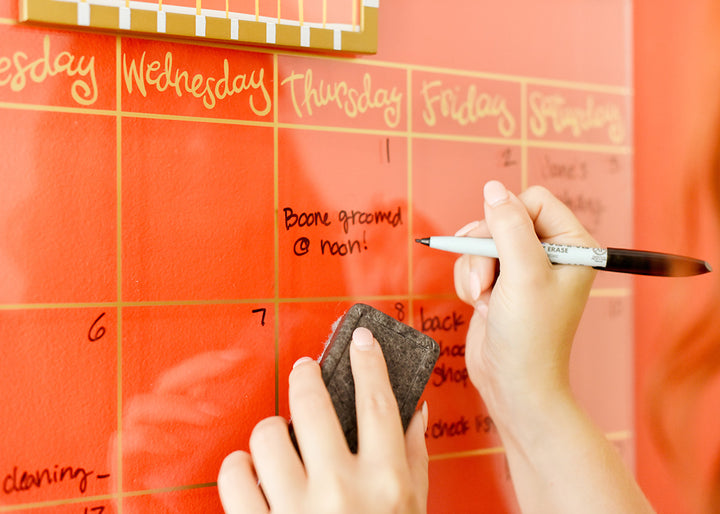 esday Wednesday Thursday Friday Saturday
1 2 3
Boone groomed
@ noon!
Jane's
6 7 8 10
back
shop
check list
cleaning
ERASE